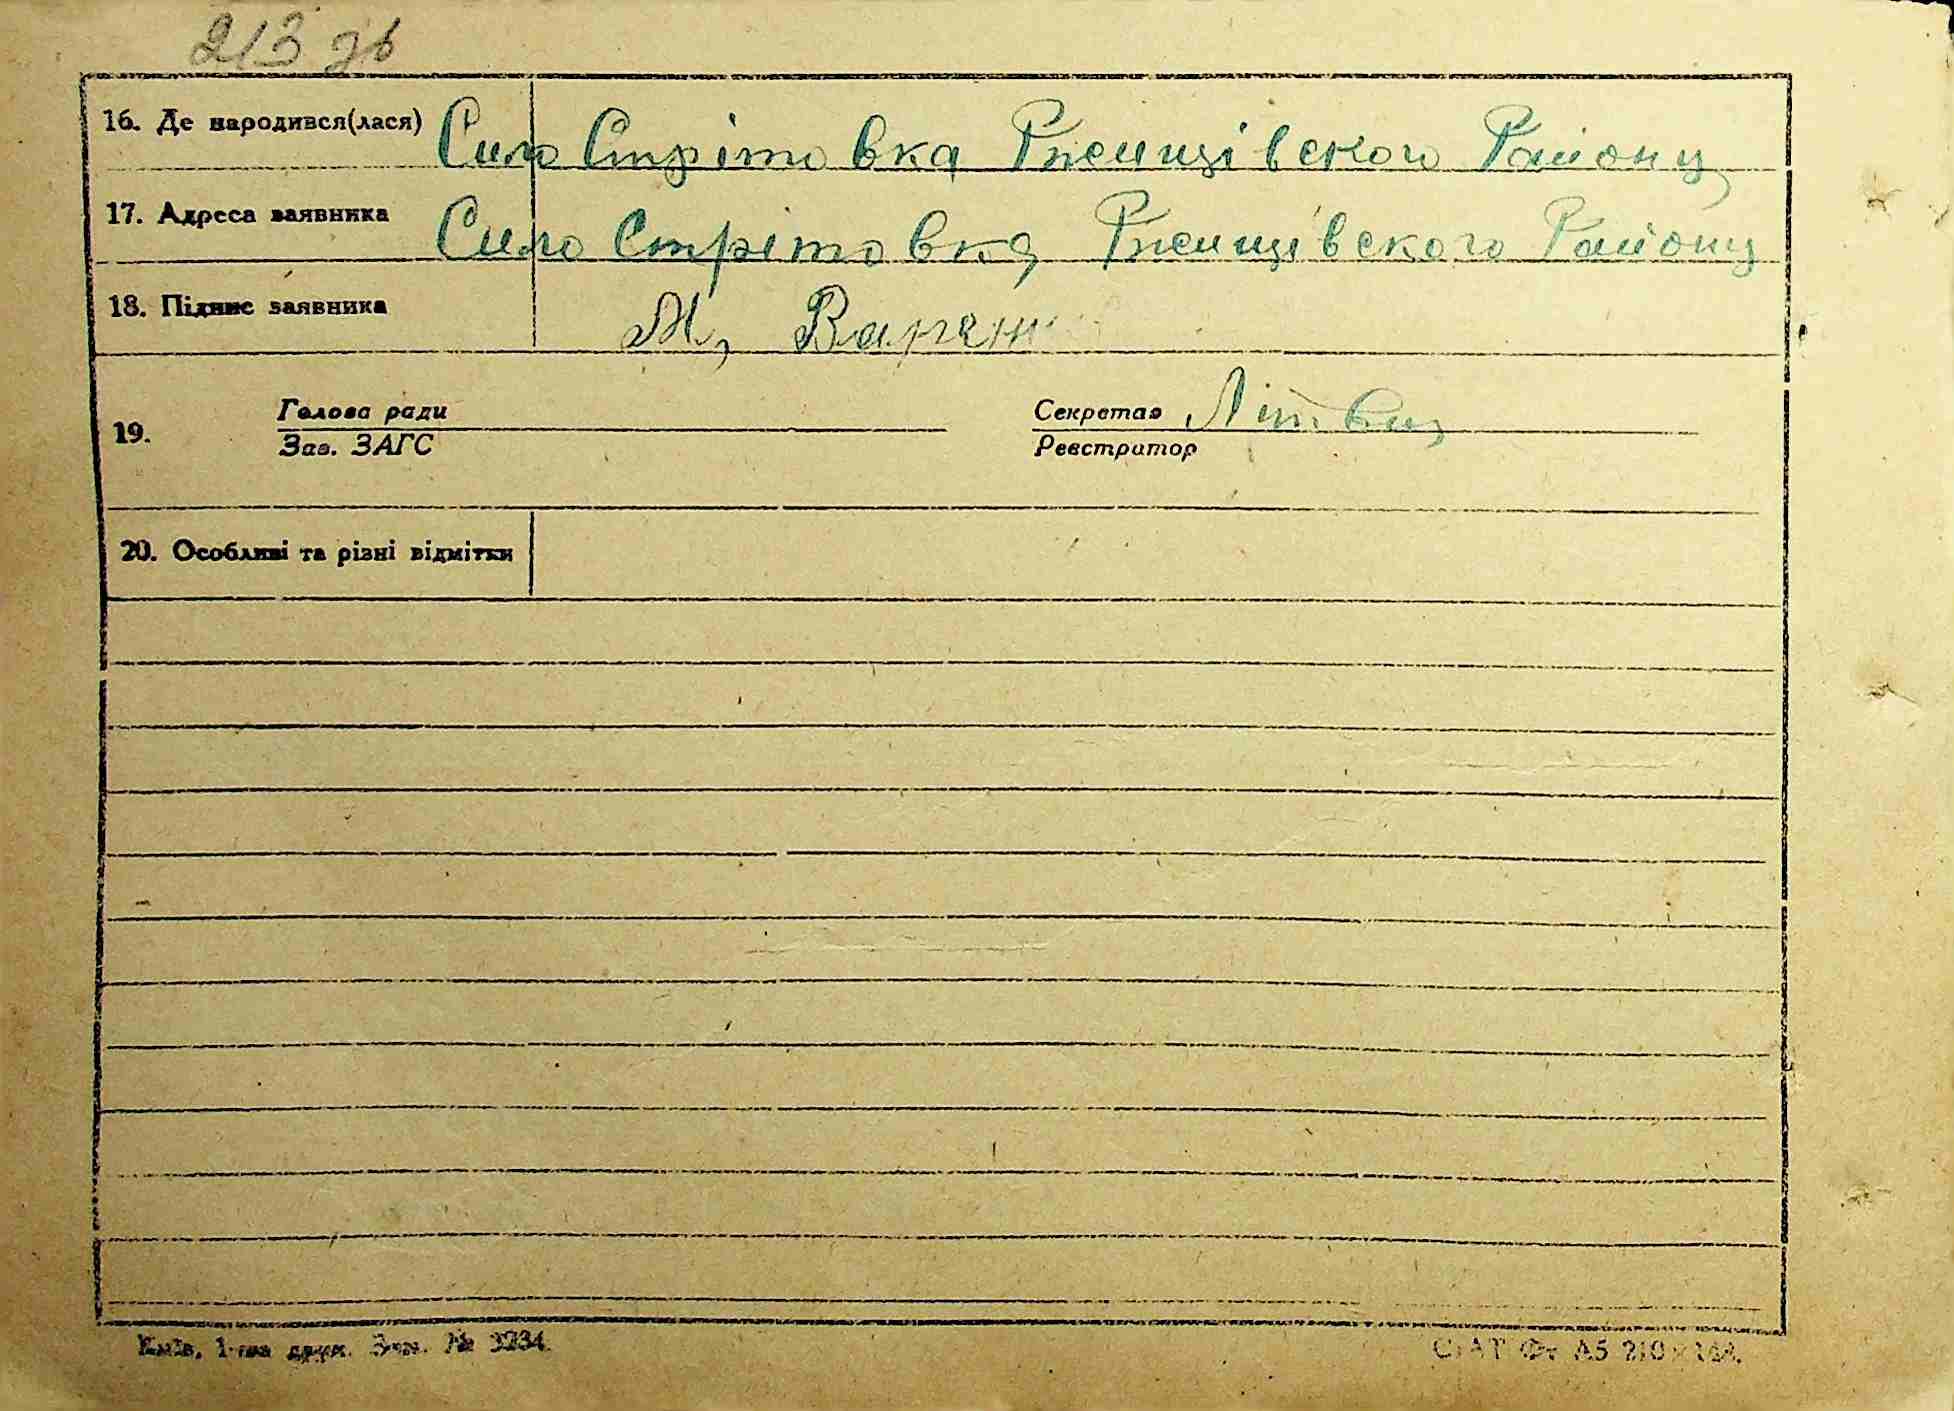 213 зв
16. Де народився(лася) Сило Стрітовка Ржищівского Району
17. Адреса заявника Сило Стрітовка Ржищівского Району
18. Підпис заявника М,
Голова ради Секретар
19.
Зав. ЗАГС Реєстратор
20. Особливі та різні відмітки
Київ, 1-ша друк. Зам. № 3234.